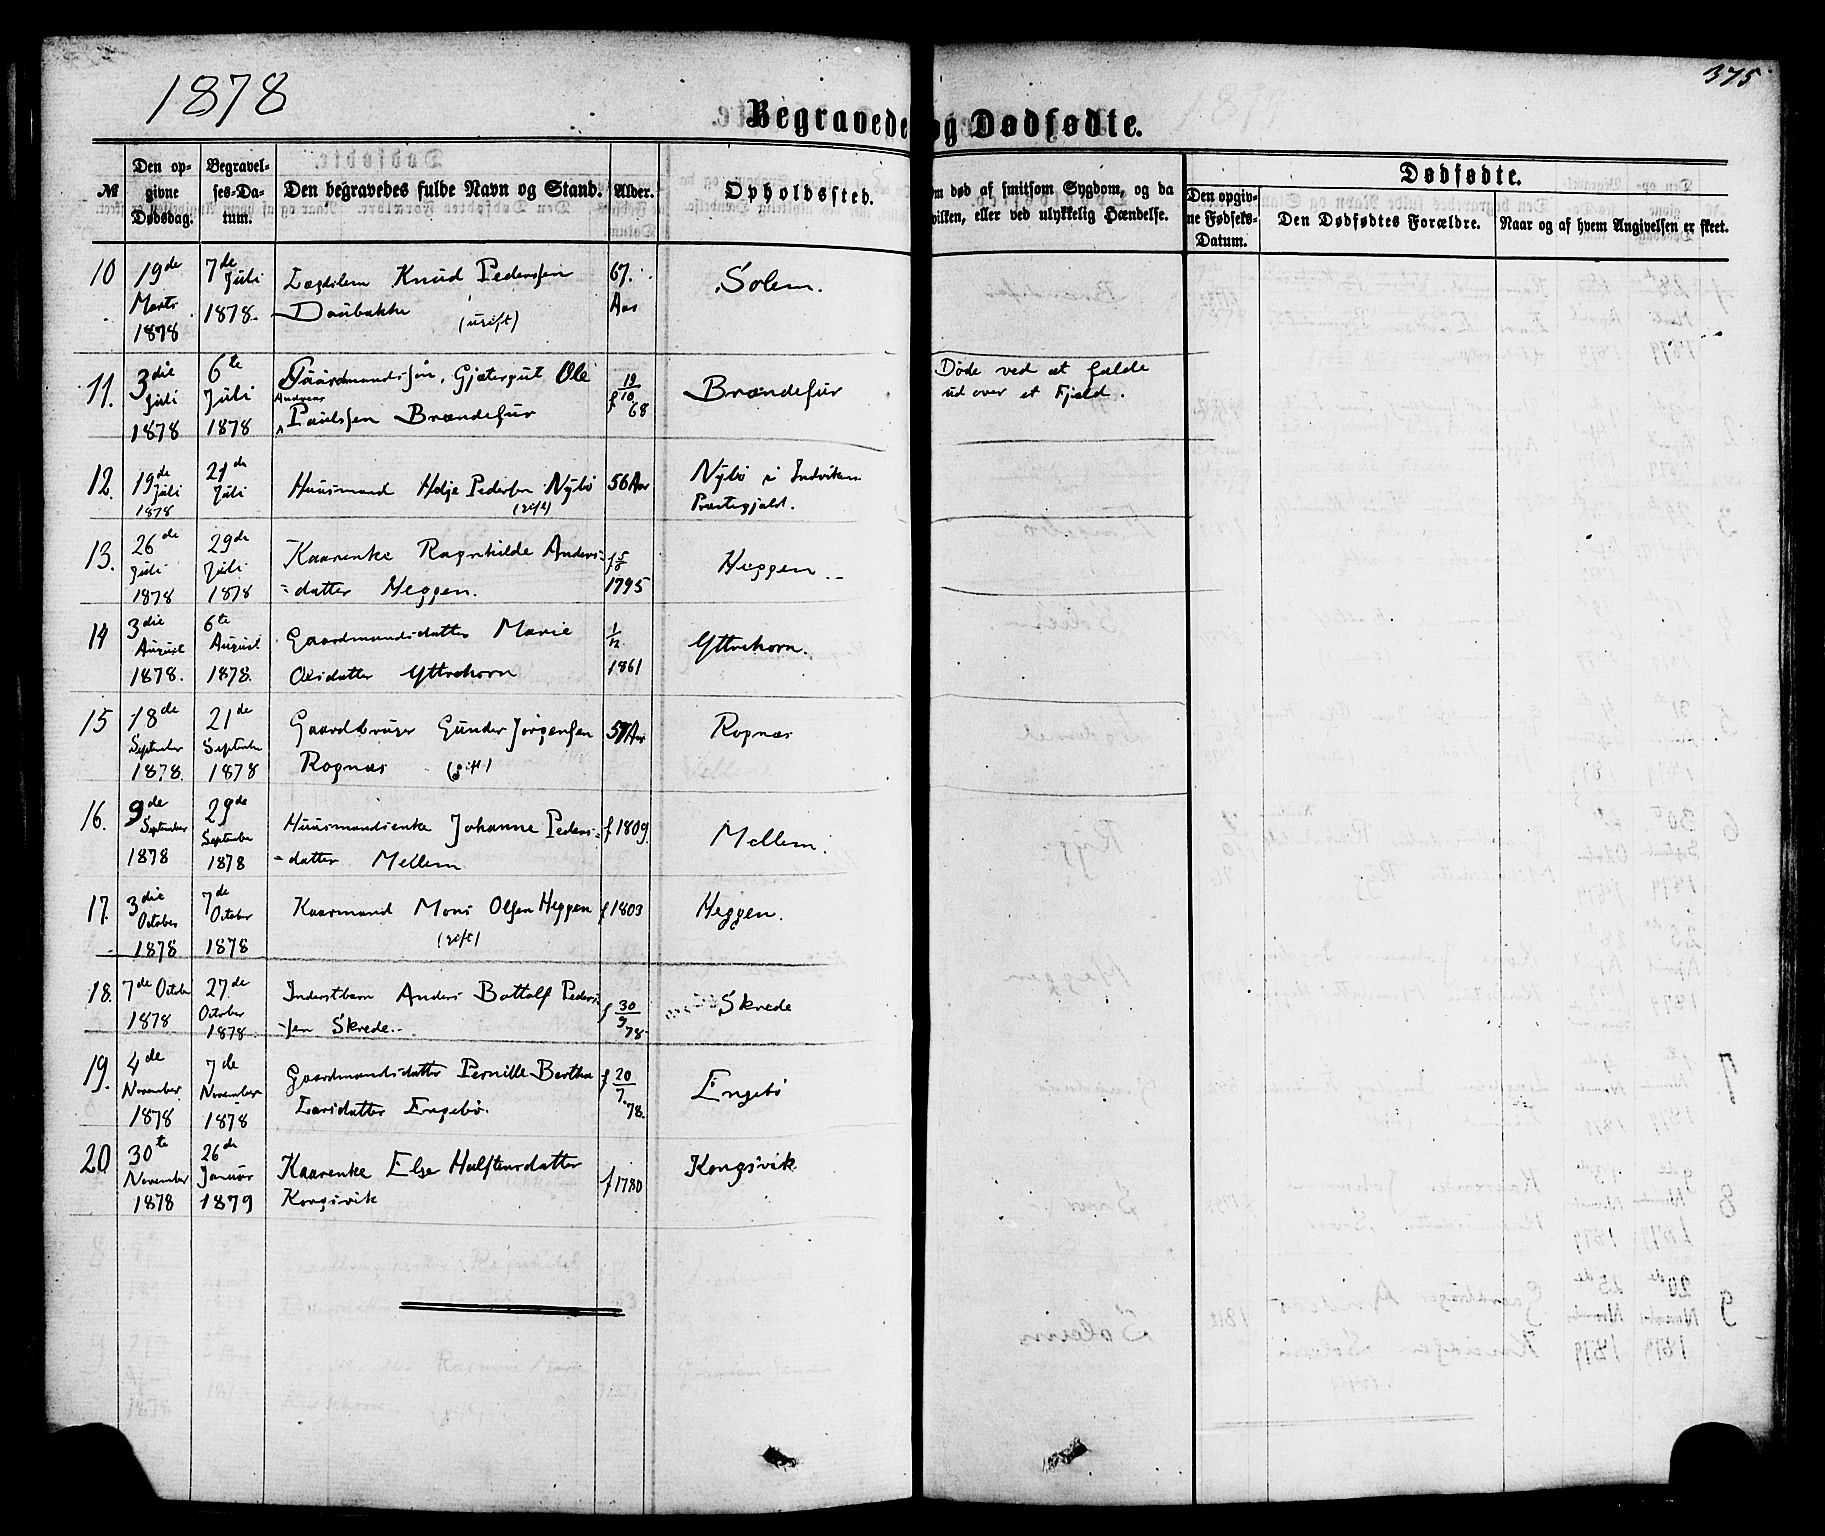 1878
375
Begravede og Dødfødte.
№
Den op-
givne
Dødsdag.
Begravel-
ses-Da-
tum.
Den begravedes fulde Navn og Stand.
Alder.
Opholdssted.
om død af smitsom Sygdom, og da
vilken, eller ved ulykkelig Hændelse.
Dødfødte.
Den opgiv-
ne Fødsels-
Datum.
Den Dødfødtes Forældre.
Naar og af hvem Angivelsen er skeet.
10 19de Marts 1878 7de Juli 1878. Lægdslem Knud Pederssen 67. Aar Solem.
Daubakke (ugift)
11. 3die Juli 1878 6te Juli 1878 Gaardmandssøn, Gjætergut Ole f 19/10 68 Brændefur Døde ved at falde
Andreas
Paulssen Brændefur ud over et Fjeld.
12. 19de Juli 1878 21de Juli Huusmand Helje Pedersen Nybø 56 Aar Nybø i Indviken
(gift) Præstegjæld.
13. 26de Juli 1878 29de Juli 1878 Kaarenke Ragnhilde Anders= f 5/6 1795 Heggen
=datter Heggen.
14 3die August 1878. 6te August 1878. Gaardmandsdatter Marie 1/12 1861 Yttrehorn.
Olsdatter Yttrehorn
15 18de September 1878. 21de September 1878 Gaardbruger Gunder Jørgensen 57 Aar Rognæs
Rognæs (gift)
16. 9de September 1878 29de September 1878 Huusmandsenke Johanne Peders= f 1809. Mellem.
=datter Mellem.
17. 3die October 1878 7de October 1878 Kaarmand Mons Olsen Heggen f 1803 Heggen.
(gift)
18. 7de October 1878 27de October 1878. Inderstbarn Anders Bottolf Peders= f 30/9 78 Skrede
=sen Skrede.
19. 4de November 1878 7de November 1878 Gaardmandsdatter Pernille Bertha f 20/7 78. Engebø
Larsdatter Engebø.
20 30te November 1878 26de Januar 1879 Kaarenke Else Halfteinsdatter f 1780 Kongsvik
Kongsvik